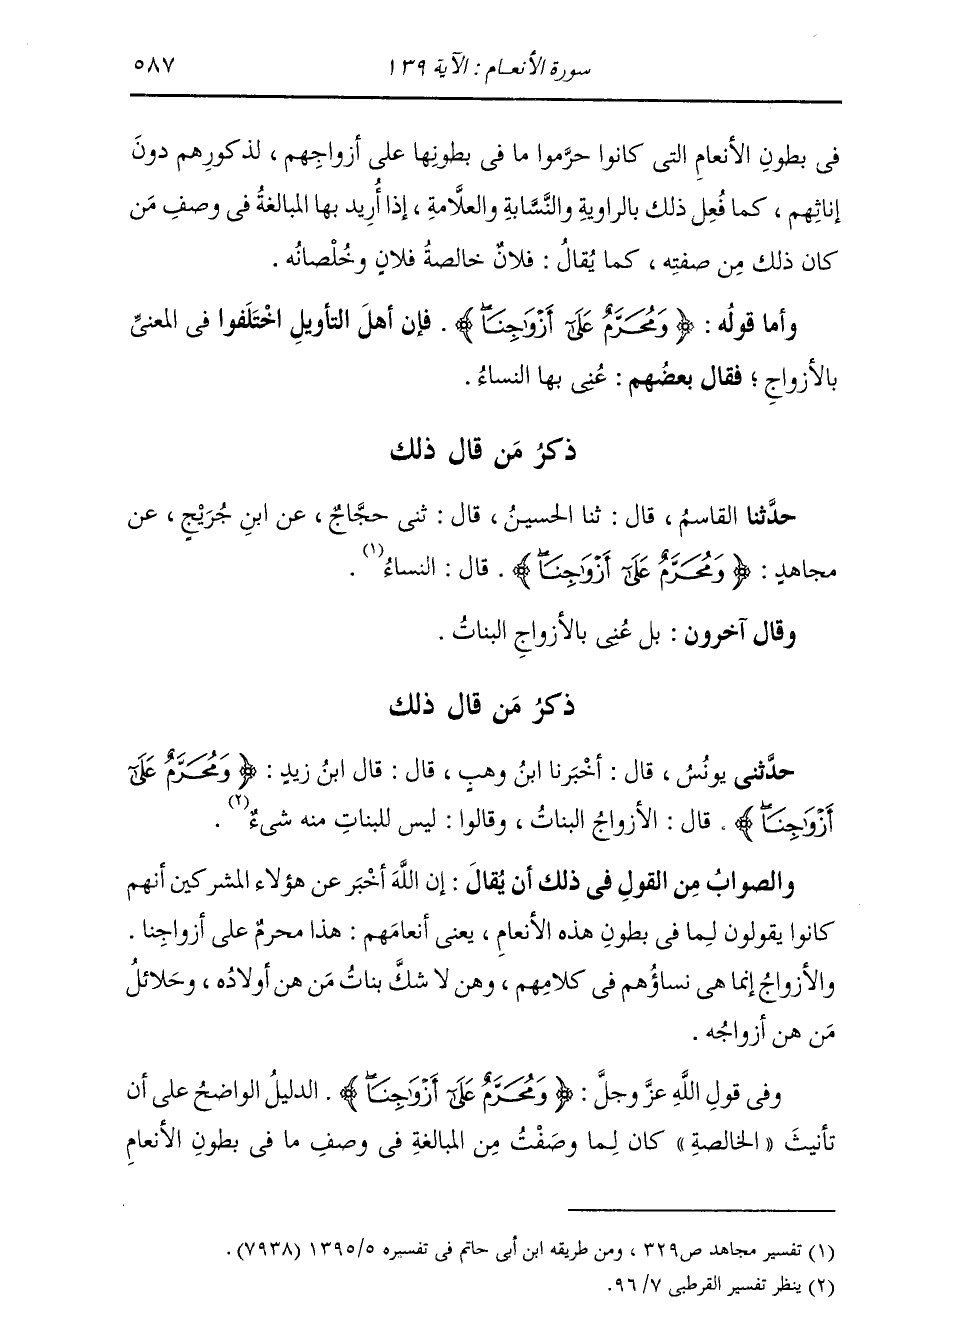 سورة الأنعام : الآية ١٣٩ ٥٨٧
فى بطونِ الأنعامِ التى كانوا حرَّموا ما فى بطونِها على أزواجِهم ، لذكورِهم دونَ
إناثِهم ، كما فُعِل ذلك بالراويةِ والنَّسَّابةِ والعلَّامةِ ، إذا أُريد بها المبالغةُ فى وصفِ مَن
كان ذلك مِن صفتِه ، كما يُقالُ : فلانٌ خالصةُ فلانٍ وخُلْصانُه .
وأما قولُه : ﴿ وَمُحَرَّمٌ عَلَىٰٓ أَزْوَٰجِنَاۖ ﴾ . فإن أهلَ التأويلِ اخْتَلَفوا فى المعنىِّ
بالأزواجِ ؛ فقال بعضُهم : عُنِى بها النساءُ .
ذكرُ مَن قال ذلك
حدَّثنا القاسمُ ، قال : ثنا الحسينُ ، قال : ثنى حجَّاجٌ ، عن ابنِ جُرَيْجٍ ، عن
مجاهدٍ : ﴿ وَمُحَرَّمٌ عَلَىٰٓ أَزْوَٰجِنَاۖ ﴾ . قال : النساءُ(١) .
وقال آخرون : بل عُنِى بالأزواجِ البناتُ .
ذكرُ مَن قال ذلك
حدَّثنى يونُسُ ، قال : أخْبَرنا ابنُ وهبٍ ، قال : قال ابنُ زيدٍ : ﴿ وَمُحَرَّمٌ عَلَىٰٓ
أَزْوَٰجِنَاۖ ﴾ . قال : الأزواجُ البناتُ ، وقالوا : ليس للبناتِ منه شىءٌ(٢) .
والصوابُ مِن القولِ فى ذلك أن يُقالَ : إن اللَّهَ أخْبَر عن هؤلاء المشركين أنهم
كانوا يقولون لِما فى بطونِ هذه الأنعامِ ، يعنى أنعامَهم : هذا محرمٌ على أزواجِنا .
والأزواجُ إنما هى نساؤُهم فى كلامِهم ، وهن لا شكَّ بناتُ مَن هن أولادُه ، وحَلائلُ
مَن هن أزواجُه .
وفى قولِ اللَّهِ عزَّ وجلَّ : ﴿ وَمُحَرَّمٌ عَلَىٰٓ أَزْوَٰجِنَاۖ ﴾ . الدليلُ الواضحُ على أن
تأنيثَ « الخالصةِ » كان لِما وصَفْتُ مِن المبالغةِ فى وصفِ ما فى بطونِ الأنعامِ
(١) تفسير مجاهد ص٣٢٩ ، ومن طريقه ابن أبى حاتم فى تفسيره ١٣٩٥/٥ (٧٩٣٨) .
(٢) ينظر تفسير القرطبى ٩٦/٧.